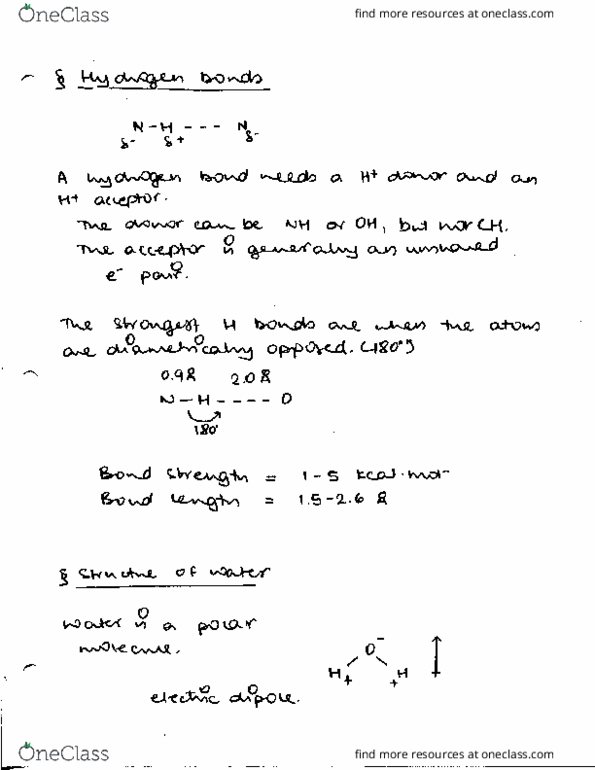 OneClass
find more resources at oneclass.com
§ Hydrogen bonds
N - H - - - N
δ- δ+ δ-
A hydrogen bond needs a H+ donor and an
H+ acceptor.
The donor can be NH or OH, but not CH.
The acceptor is generally an unshared
e- pair.
The strongest H bonds are when the atoms
are diametrically opposed. (180°)
0.9Å 2.0Å
N - H - - - - O
180°
Bond strength = 1-5 kcal.mol-
Bond length = 1.5-2.6 Å
§ Structure of water
Water is a polar
molecule.
O-
H+ +H
electric dipole.
OneClass
find more resources at oneclass.com